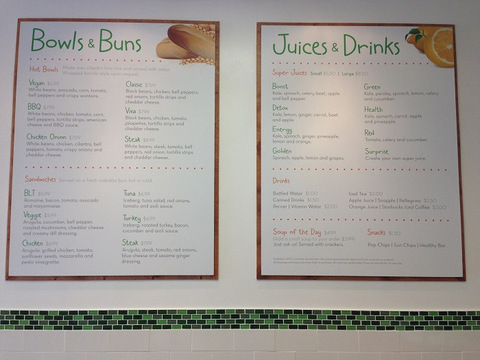 Bowls & Buns
Hot Bowls
Vegan
White beans, avocado, corn, tomato,
bell peppers and crispy wontons.
BBQ
White beans, chicken, corn, bell
peppers, tortilla strips, american
cheese and BBQ sauce.
Chicken Onion
White beans, chicken, cilantro, bell
peppers, tomato, crispy onions
and cheddar cheese.
Classic
Black beans, chicken, bell peppers,
red onions, tortilla strips and
cheddar cheese.
Viva
Black beans, chicken, tomato,
jalapeños, tortilla strips and
cheddar cheese.
Steak
White beans, steak, tomato, bell
peppers, red onion, tortilla strips
and cheddar cheese.
Sandwiches
BLT
Romaine, bacon, tomato, avocado
and mayonnaise
Veggie
Arugula, cucumber, bell pepper,
roasted mushrooms, cheddar cheese
and creamy dill dressing
Chicken
Arugula, grilled chicken, tomato,
sunflower seeds, mozzarella and
pesto vinaigrette
Tuna
Iceberg, tuna salad, red onions,
tomato and aioli sauce.
Turkey
Iceberg, roasted turkey, bacon,
cucumber and aioli sauce.
Steak
Arugula, steak, tomato, red onions,
blue cheese and sesame ginger
dressing.
Juices & Drinks
Super Juices Small Large
Boost
Kale, spinach, celery, beet, apple
and bell pepper
Detox
Kale, lemon, ginger, carrot, beet
and apple.
Energy
Kale, spinach, ginger, pineapple,
lemon and orange.
Golden
Spinach, apple, lemon and grapes.
Green
Kale, parsley, spinach, lemon, celery
and cucumber.
Health
Kale, spinach, carrot, apple
and pineapple
Red
Tomato, celery and cucumber
Surprise
Create your own super juice.
Drinks
Bottled Water
Canned Drinks
Perrier | Vitamin Water
Iced Tea
Apple Juice | Snapple | Pellegrino
Orange Juice | Starbucks Iced Coffee
Soup of the Day
Just ask us! Served with crackers.
Snacks
Pop Chips | Sun Chips | Healthy Bar